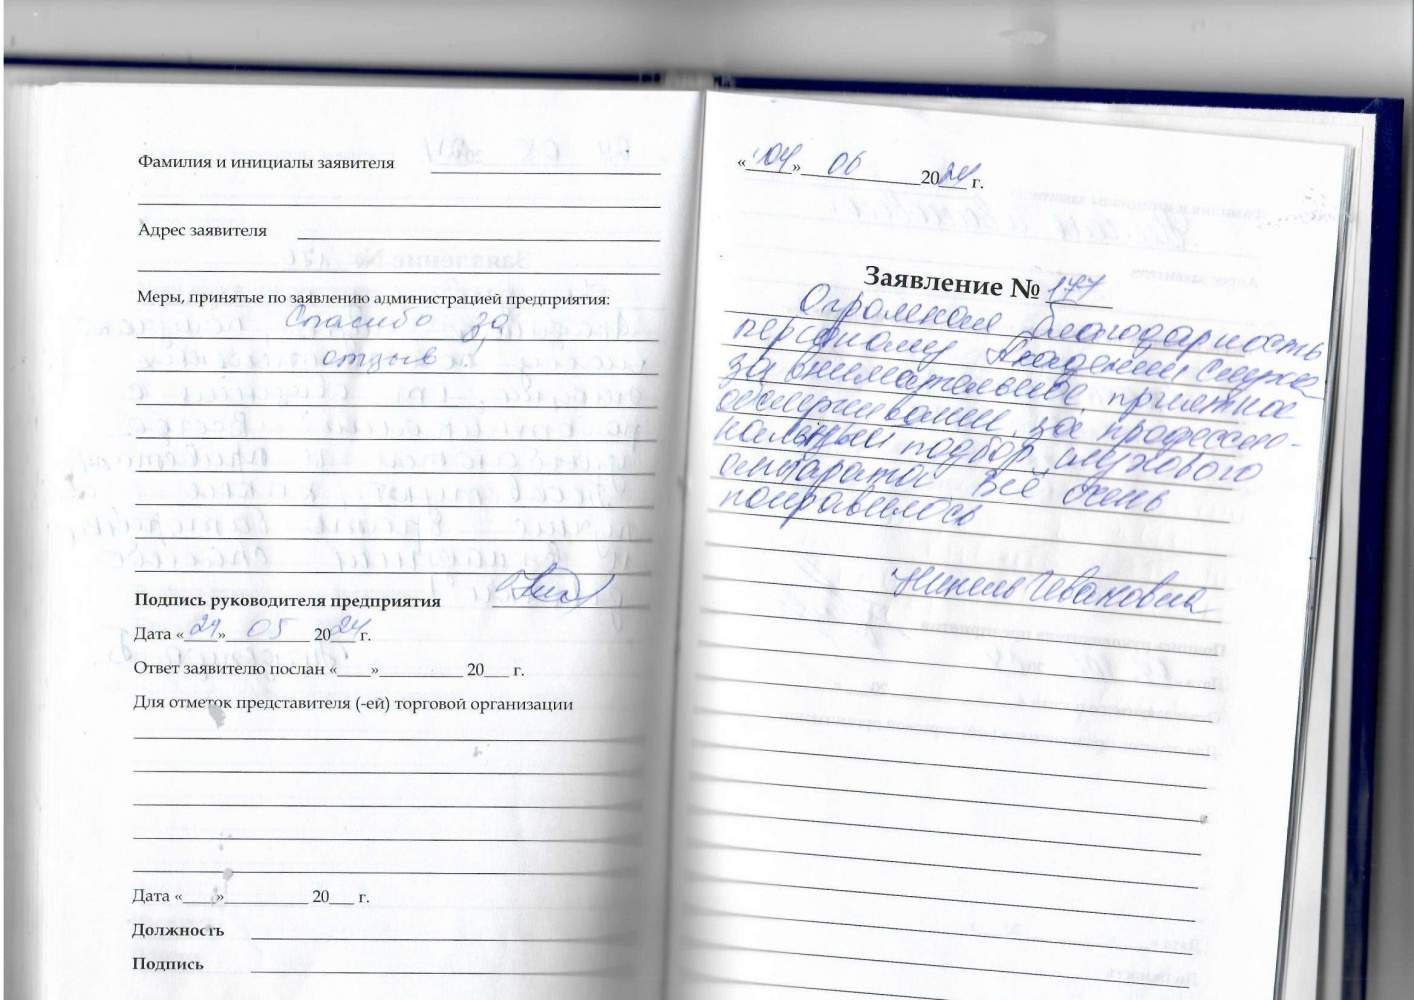 Фамилия и инициалы заявителя
Адрес заявителя
Меры, принятые по заявлению администрацией предприятия:
Спасибо за
отзыв
Подпись руководителя предприятия
Дата «24» 05 2024 г.
Ответ заявителю послан «___» ________ 20___ г.
Для отметок представителя (-ей) торговой организации
Дата «___» ________ 20___ г.
Должность
Подпись
«04» 06 2024 г.
Заявление № 177
Огромная благодарность
персоналу Академии Слуха
за внимательное приятное
обслуживание, за профессио-
нальный подбор слухового
аппарата. Всё очень
понравилось